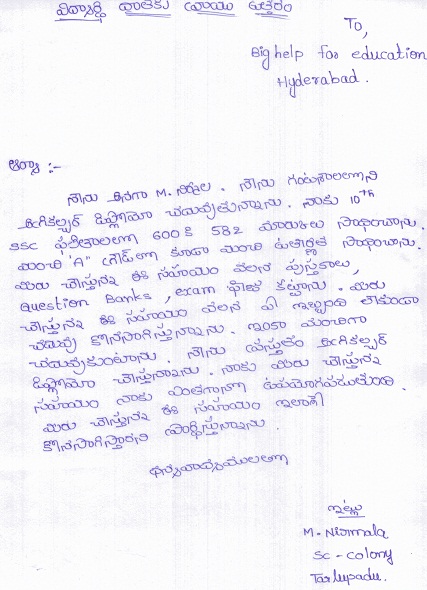 విద్యార్థి దాతకు వ్రాయు ఉత్తరం
To,
Big help for education
Hyderabad.
ఆర్యా :-
నేను అనగా M. నిర్మల. నేను గంటశాలలోని
అగ్రికల్చర్ డిప్లొమా చదువుతున్నాను. నాకు 10th
SSC ఫలితాలలో 600కి 582 మార్కులు సాధించాను.
మంచి "A" గ్రేడ్‌లో కూడా మంచి ఉత్తీర్ణత సాధించాను.
మీరు చేస్తున్న ఈ సహాయం వలన పుస్తకాలు,
Question Banks, exam ఫీజు కట్టాను. మీరు
చేస్తున్న ఈ సహాయం వలన ఏ ఇబ్బంది లేకుండా
చదువు కొనసాగిస్తున్నాను. ఇంకా మంచిగా
చదువుకుంటాను. నేను ప్రస్తుతం అగ్రికల్చర్
డిప్లొమా చేస్తున్నాను. నాకు మీరు చేస్తున్న
సహాయం నాకు ఎంతగానో ఉపయోగపడుతుంది.
మీరు చేస్తున్న ఈ సహాయం ఇలాగే
కొనసాగిస్తారని ప్రార్థిస్తున్నాను.
ధన్యవాదములతో
ఇట్లు
M. Nirmala
SC - colony
Tarlupadu.